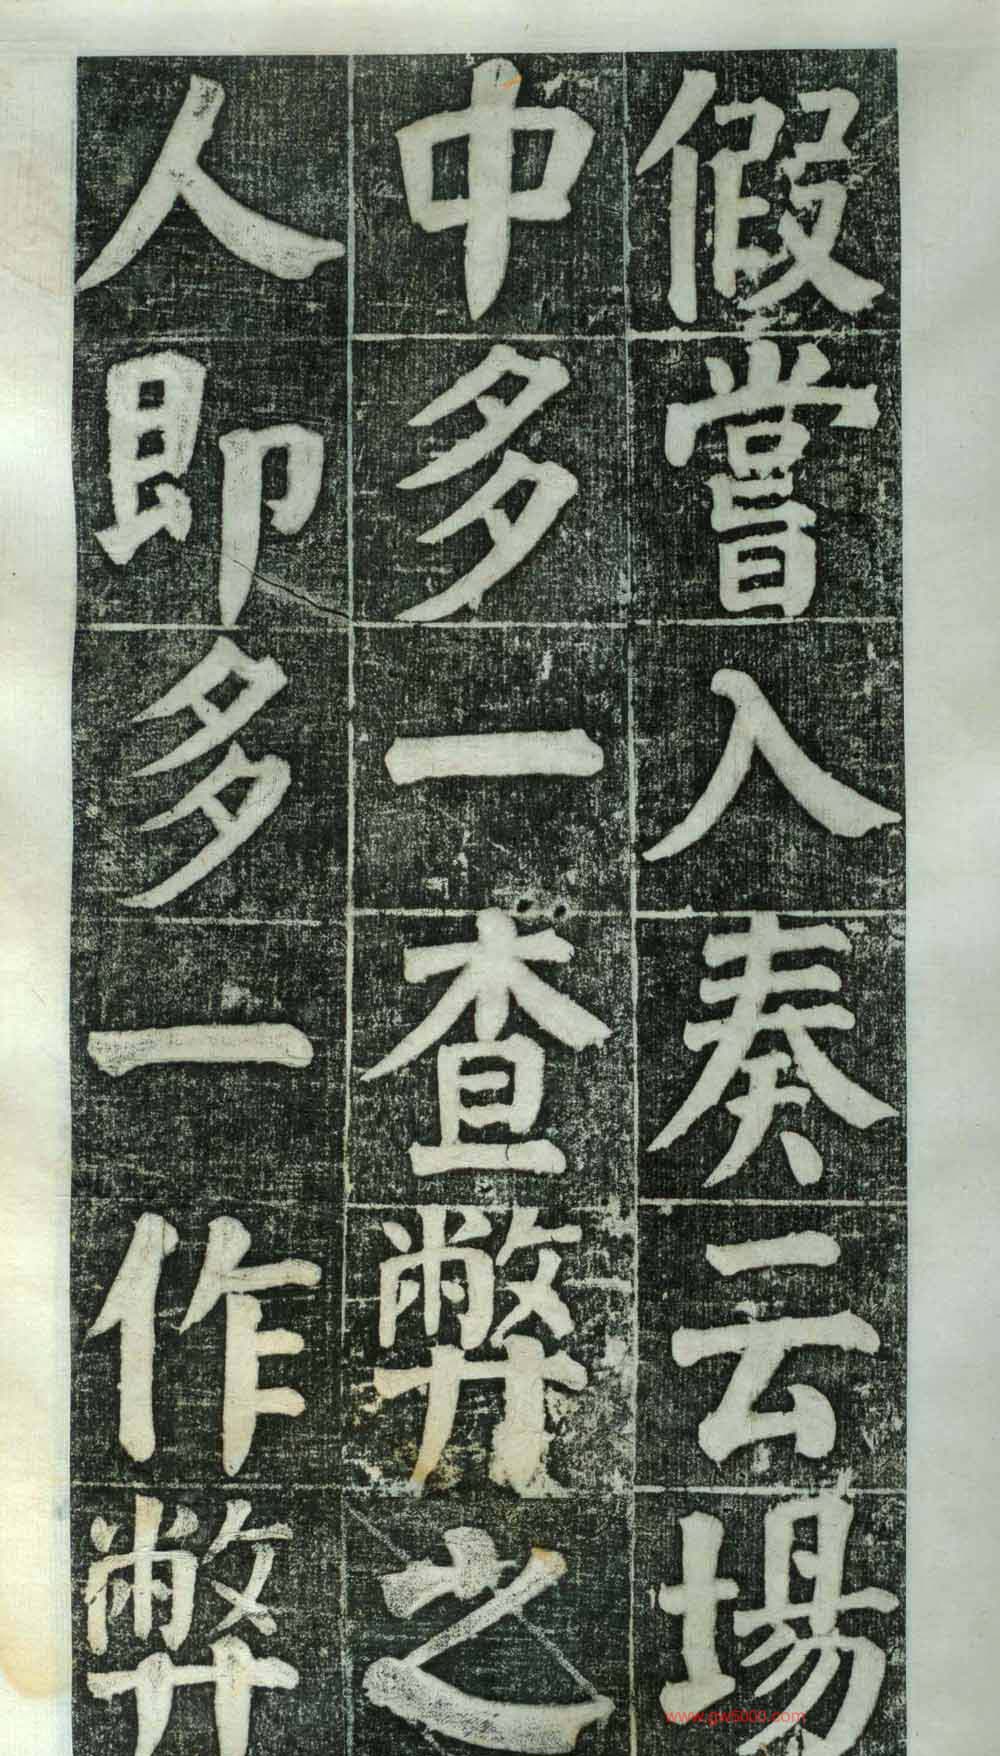 假嘗入奏云場
中多一查弊之
人即多一作弊
www.gw5000.com